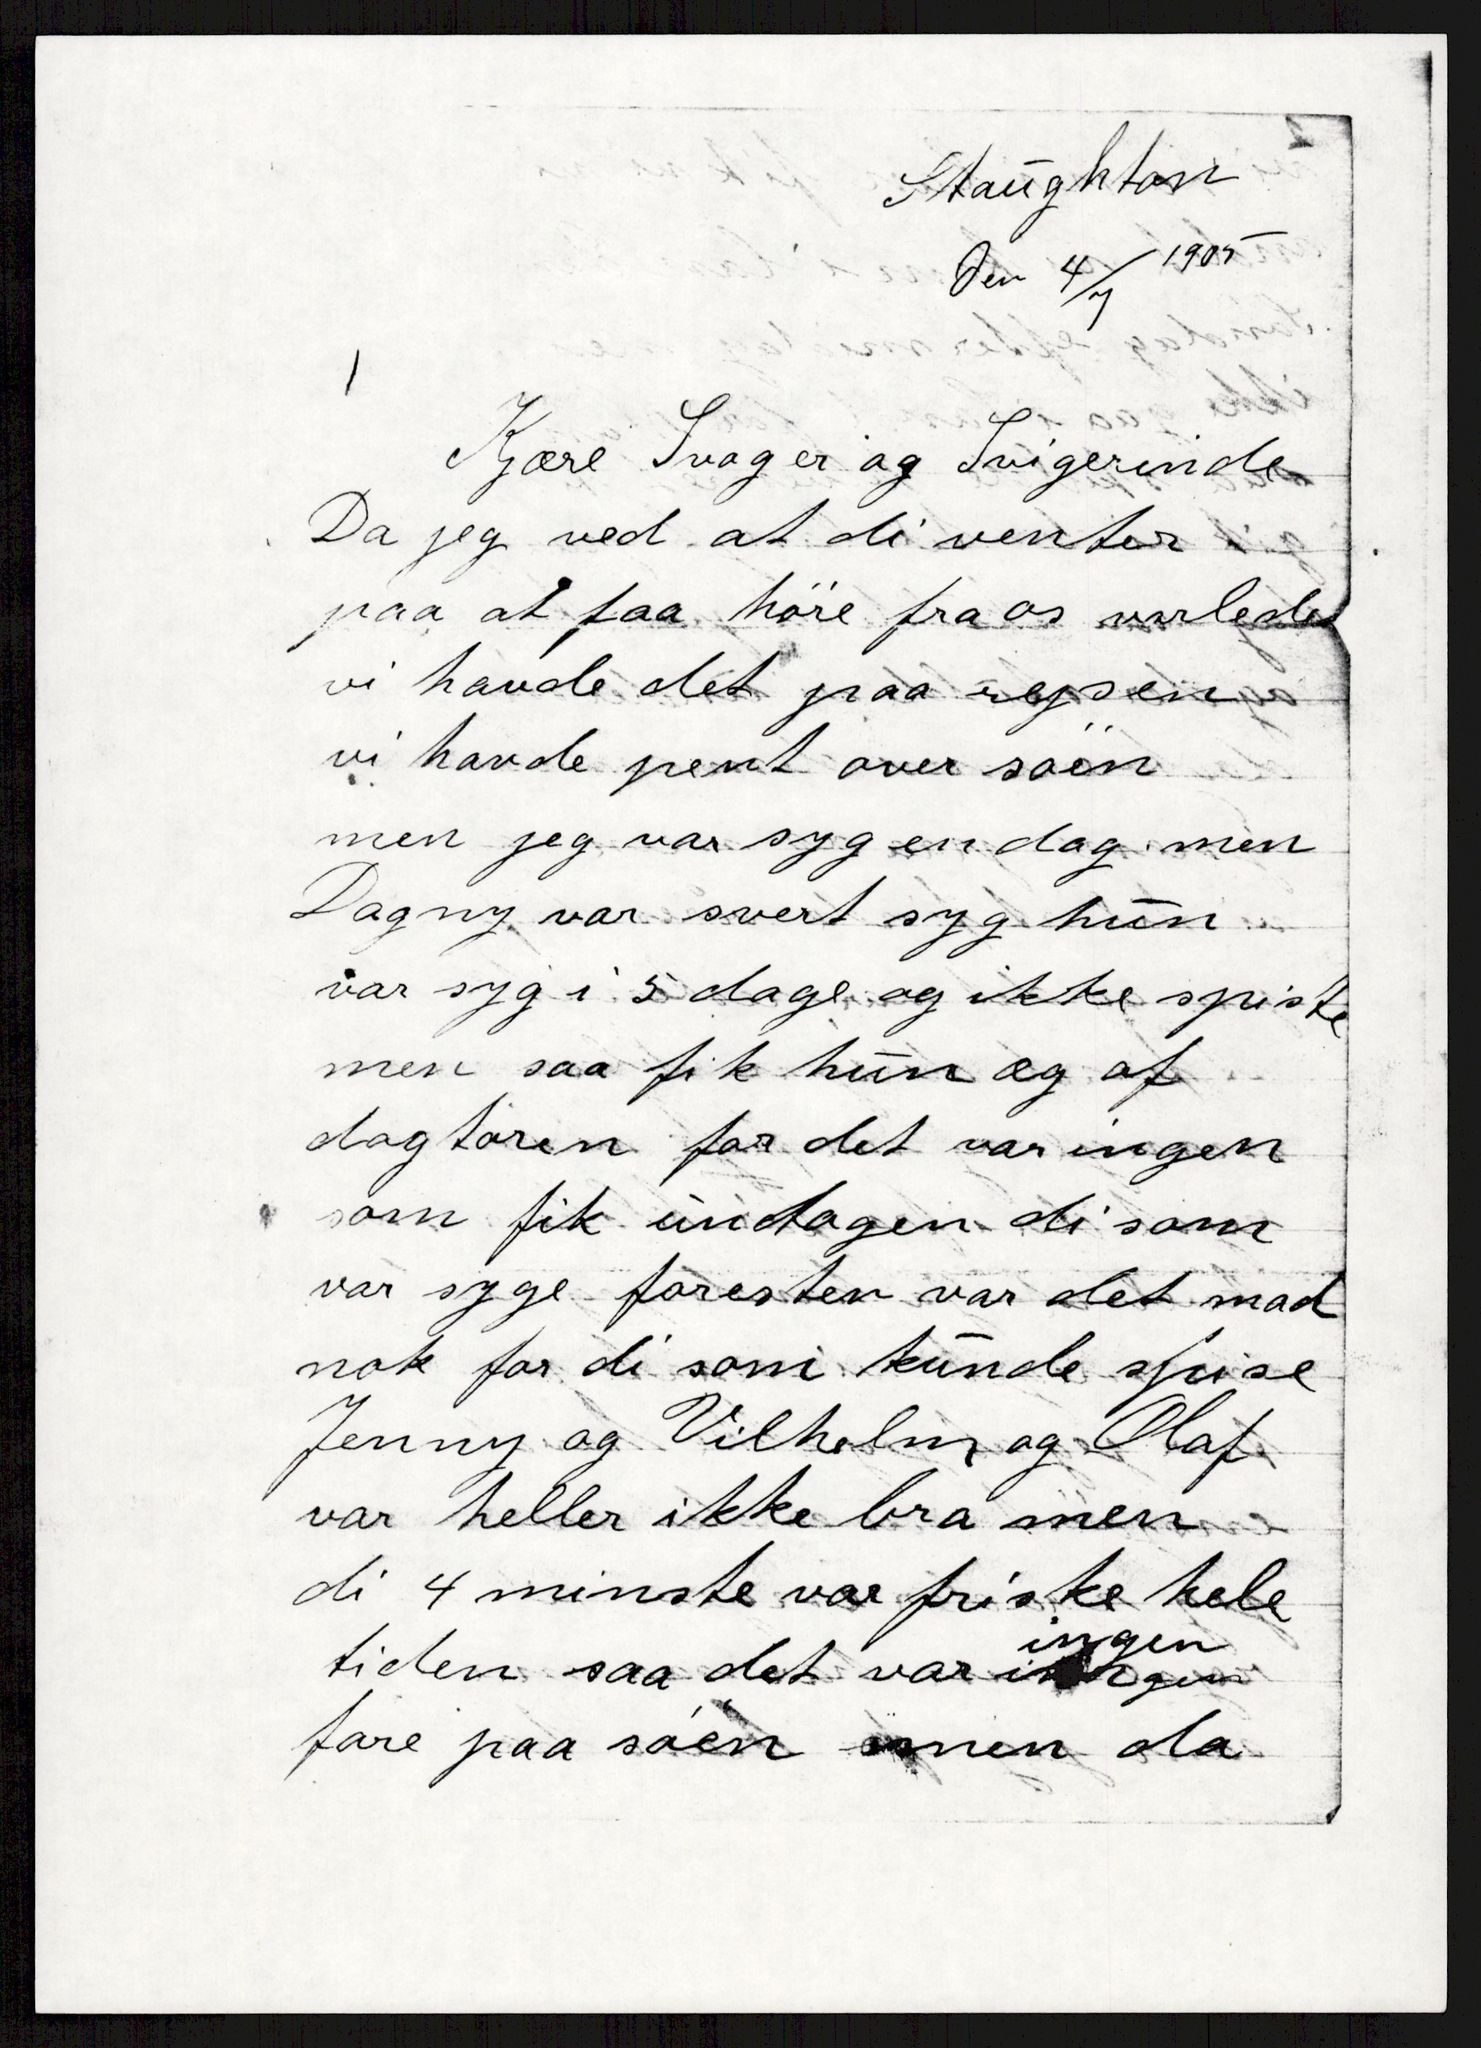 Staughton
Den 4/7 1905
1
Kjære Svoger og Svigerinde
Da jeg ved at di venter
paa at faa höre fra os vorledes
vi havde det paa rejsen
vi havde pent over söen
men jeg var syg en dag men
Dagny var svert syg hun
var syg i 5 dage og ikke spiste
men saa fik hun æg af
dogtoren for det var ingen
som fik undtagen di som
var syge foresten var det mad
nok for di som kunde spise
Jenny og Vilhelm og Olaf
var heller ikke bra men
di 4 minste var friske hele
tiden saa det var ingen
fare paa söen men da